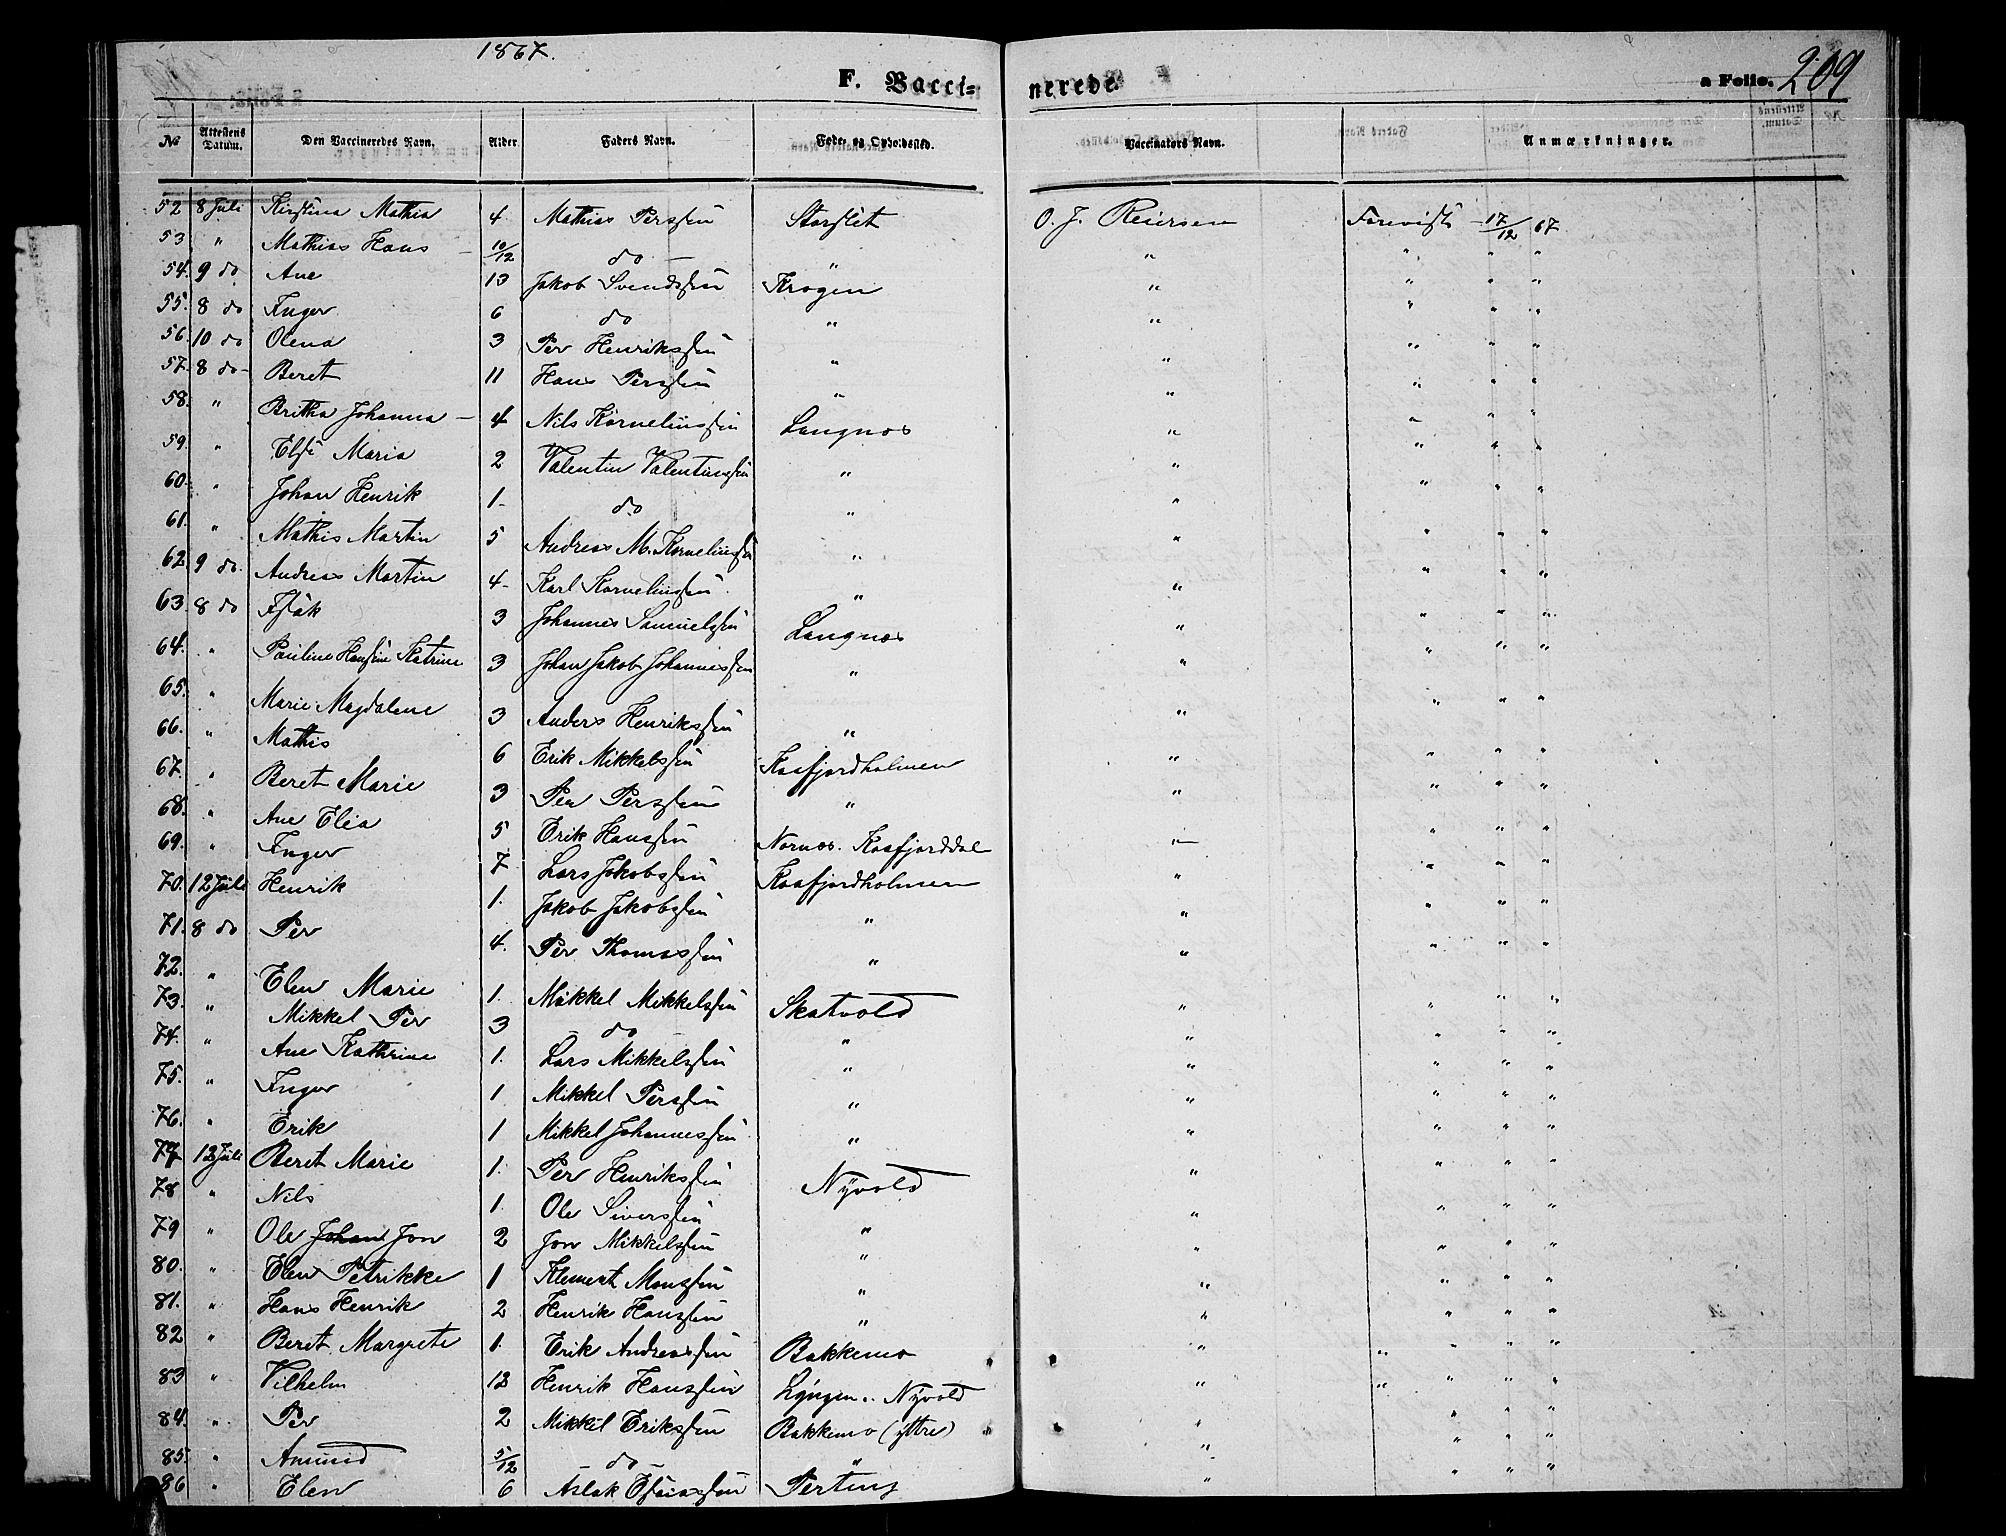 1867.
F. Vaccinerede.
a Folio. 209
No Attestens Datum. Den Vaccineredes Navn. Alder Faders Navn. Føde- og Opholdssted. Vaccinators Navn. Anmærkninger.
52 8 Juli Kirstina Mathia 4 Mathias Perssøn Storslet O. J. Reiersen Forevist 17/12 67
53 " Mathias Hans 10/12 do " " " " "
54. 9 do Ane 13 Jakob Svendssøn Krogen " " " "
55. 8 do Inger 6 do " " " " "
56. 10 do Olena 3 Per Henrikssøn " " " " "
57. 8 do Beret 11 Hans Perssøn " " " " "
58. " Britha Johanna 4 Nils Kornelinssøn Langnes " " " "
59. " Else Maria 2 Valentin Valentinssøn " " " " "
60. " Johan Henrik 1 do " " " " "
61. " Mathis Martin 5 Andreas M. Kornelinssøn " " " " "
62. 9 do Andreas Martin 4 Karl Kornelinssøn " " " " "
63. 8 do Isak 3 Johannes Samuelssøn Langnes " " " "
64. " Pauline Hansine Katrine 3 Johan Jakob Johannessøn " " " " "
65. " Marie Magdalene 3 Anders Henrikssøn " " " " "
66. " Mathis 6 Erik Mikkelssøn Kaafjordholmen " " " "
67. " Beret Marie 3 Per Perssøn " " " " "
68. " Ane Elea 5 Erik Hanssøn Nornes. Kaafjorddal " " " "
69. " Inger 7 Lars Jakobssøn Kaafjordholmen " " " "
70. 12 Juli Henrik 1. Jakob Jakobssøn " " " " "
71. 8 do Per 4. Per Thomassøn " " " " "
72. " Elen Marie 1. Mikkel Mikkelssøn Skatvold " " " "
73. " Mikkel Per 3 do " " " " "
74. " Ane Kathrine 1. Lars Mikkelssøn " " " " "
75. " Inger 1. Mikkel Perssøn " " " " "
76. " Erik 1 Mikkel Johannessøn " " " " "
77 12 Juli Beret Marie 1. Per Henrikssøn Nyvold " " " "
78 " Nils 1. Ole Siverssøn " " " " "
79 " Ole Johan Jon 2 Jon Mikkelssøn " " " " "
80. " Elen Petrikke 1 Klemert Monssøn " " " " "
81. " Hans Henrik 2 Henrik Hanssøn " " " " "
82 " Beret Margrete 1. Erik Andreassøn Bakkemo " " " "
83 " Vilhelm 12 Henrik Hanssøn Lyngen. Nyvold " " " "
84. " Per 2 Mikkel Erikssøn Bakkemo (yttre) " " " "
85. " Amund 5/12 do " " " " "
86 " Elen 6 Aslak Esaiassøn Perting "